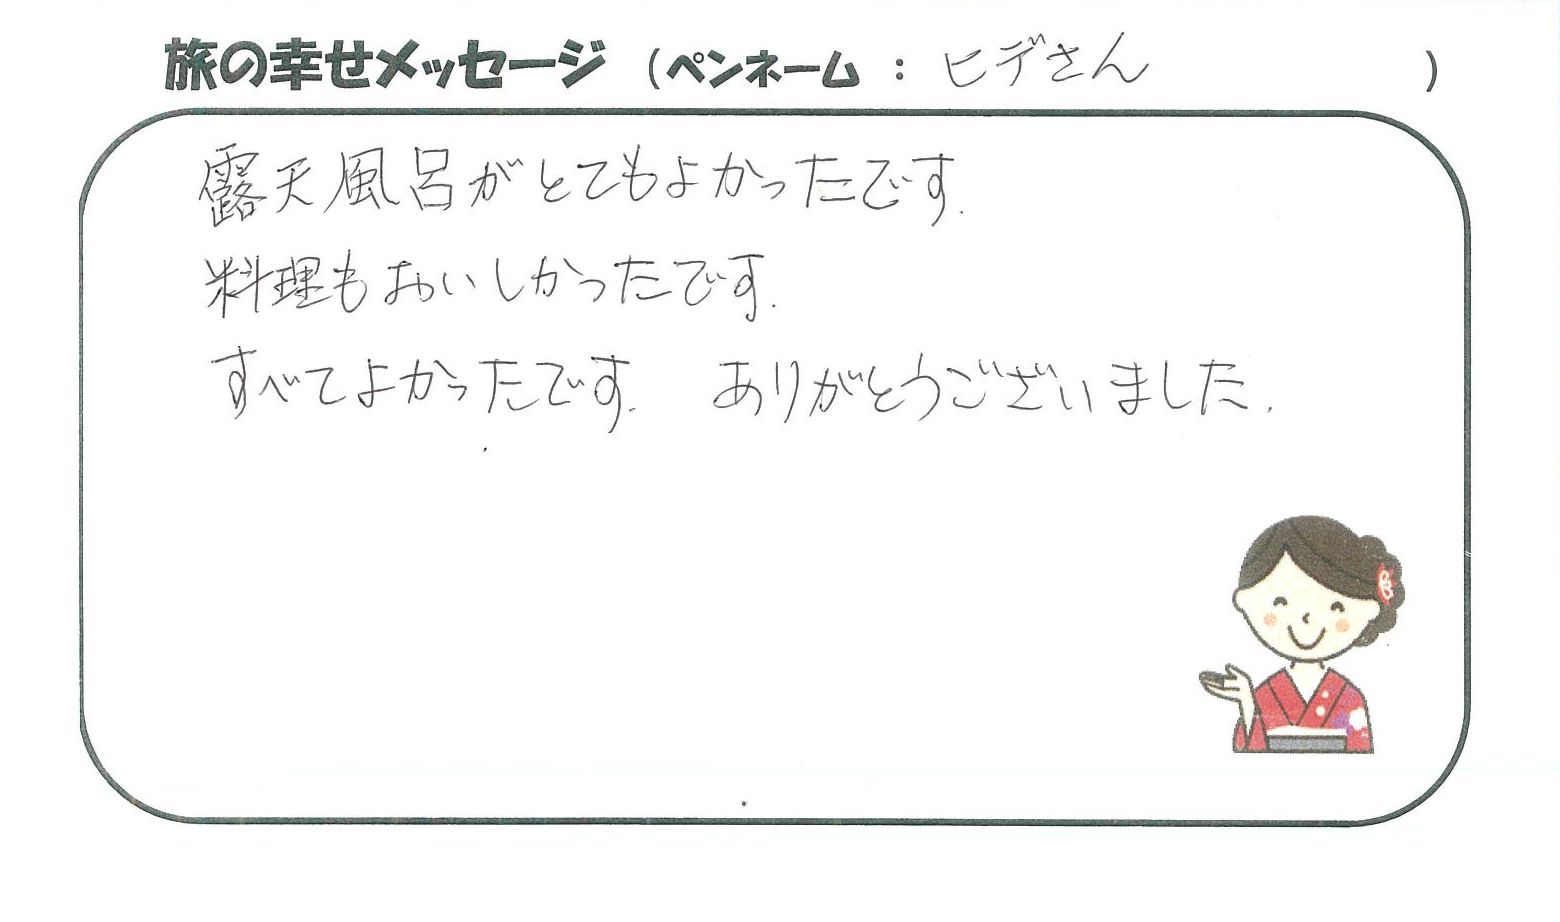 旅の幸せメッセージ (ペンネーム : ヒデさん )
露天風呂がとてもよかったです.
料理もおいしかったです.
すべてよかったです. ありがとうございました.